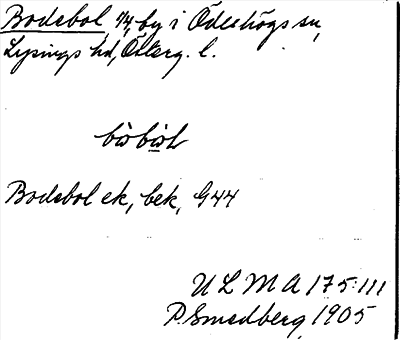 Bodebol, 1/4, by i Ödeshögs sn,
Lysings hd, Österg. l.
Bodebol ek, bek, G44
ULMA 175:111
P. Smedberg, 1905